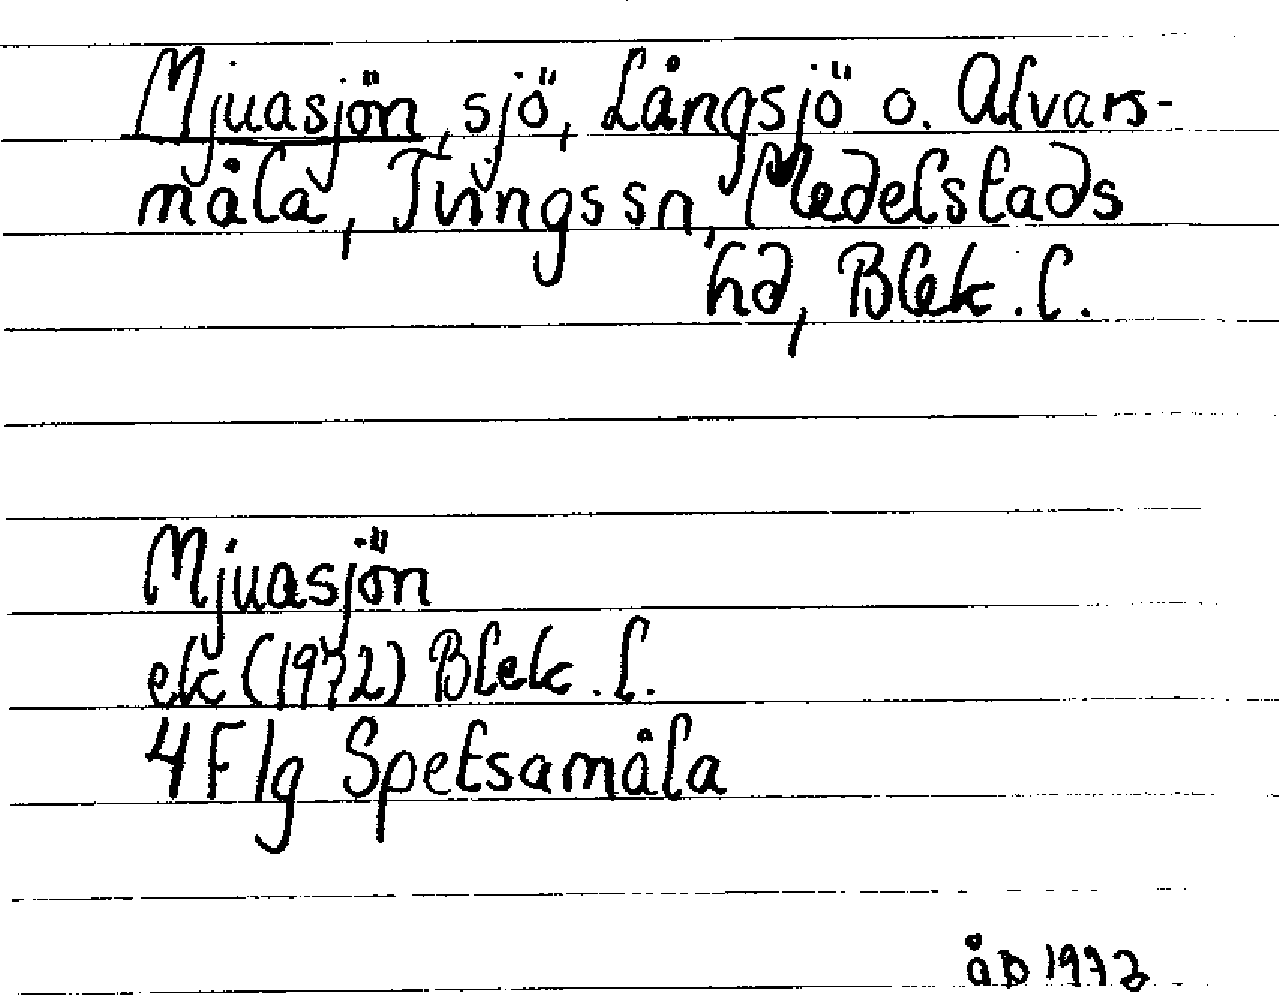 Mjuasjön, sjö, Långsjö o. Alvars-
måla, Tvings sn, Medelstads
hd, Blek. l.
Mjuasjön
ek (1972) Blek. l.
4 F lg Spetsamåla
åD 1972